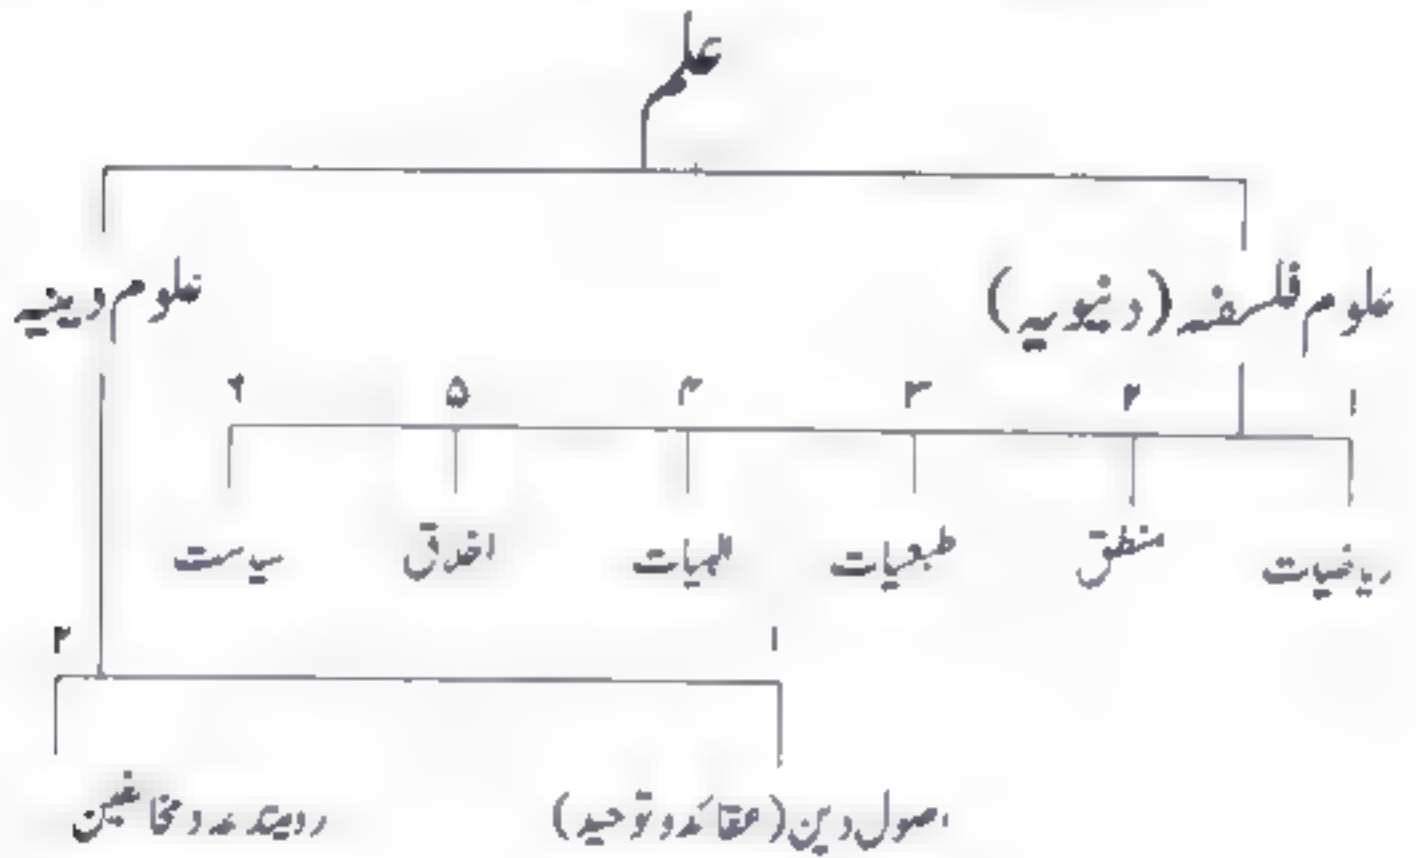 علم
علوم فلسفہ (دنیویہ) علوم دینیہ
۱ ۲ ۳ ۴ ۵ ۶
ریاضیات منطق طبعیات الہیات اخلاق سیاست
۱ ۲
اصول دین (عقائد و توحید) مخالفین